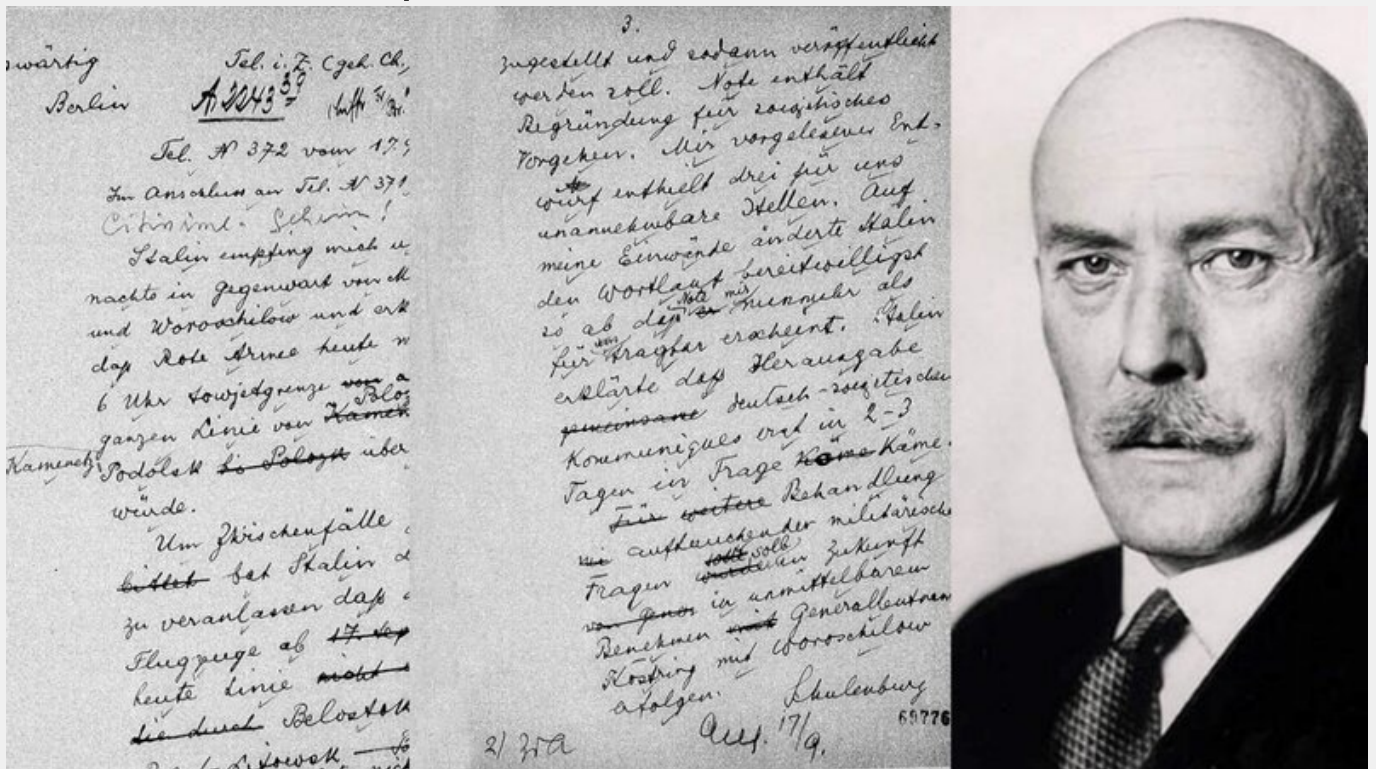 swärtig
Berlin
Tel. i. Z. (geh. Ch.,
A. 2243 39
Tel. N 372 vom 17.9
Im Anschluss an Tel. N 371
Citissime. Geheim!
Stalin empfing mich u
nachts in Gegenwart von M
und Woroschilow und erk
daß Rote Armee heute m
6 Uhr Sowjetgrenze von a
Polo
ganzen Linie von Kamen
Kamenetz
Podolsk bis Polozk über
würde.
Um Zwischenfälle
bittet bat Stalin d
zu veranlassen daß
Flugzeuge ab 17. Sep
heute Linie nicht
die durch Belostok
Litowsk
3.
zugestellt und sodann veröffentlicht
werden soll. Note enthält
Begründung für sowjetisches
Vorgehen. Mir vorgelesener Ent-
wurf enthielt drei für uns
unannehmbare Stellen. Auf
meine Einwände änderte Stalin
den Wortlaut bereitwilligst
Note mir
so ab daß er nunmehr als
uns
für tragbar erscheint. Stalin
erklärte daß Herausgabe
gemeinsame deutsch-sowjetischen
Kommuniqués erst in 2-3
Tagen in Frage Käme Käme.
Für weitere Behandlung
auftauchender militärische
soll
Fragen in Zukunft
von Gene in unmittelbarem
Benehmen mit Generalleutnan
Köstring mit Woroschilow
erfolgen.
Schulenburg
69776
17/9.
2) ZdA